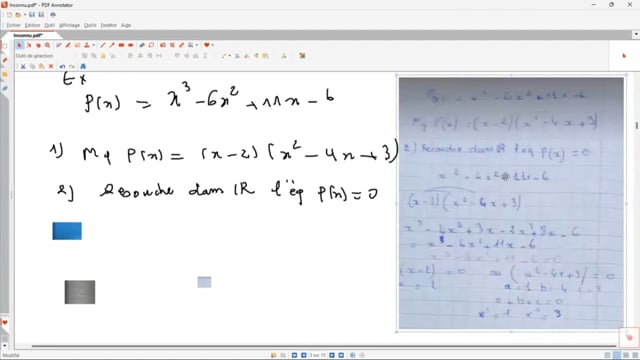 Inconnu.pdf* - PDF Annotator
Fichier Edition Affichage Outils Fenêtre Aide
Inconnu.pdf* ×
Outil de sélection
Ex
P(x) = x³ - 6x² + 11x - 6
1) Mq P(x) = (x-2)(x² - 4x + 3)
2) Résoudre dans IR l'éq P(x) = 0
P(x) = x³ - 6x² + 11x - 6
Mq P(x) = (x-2)(x² - 4x + 3)
2) Résoudre dans IR l'éq P(x) = 0
(x-2)(x² - 4x + 3)
x³ - 4x² + 3x - 2x² + 8x - 6
= x³ - 6x² + 11x - 6
(x-2) = 0 ou (x² - 4x + 3) = 0
a=1 b=-4 c=3
a + b + c = 0
x' = 1 x'' = 3
Modifié
3 sur 15